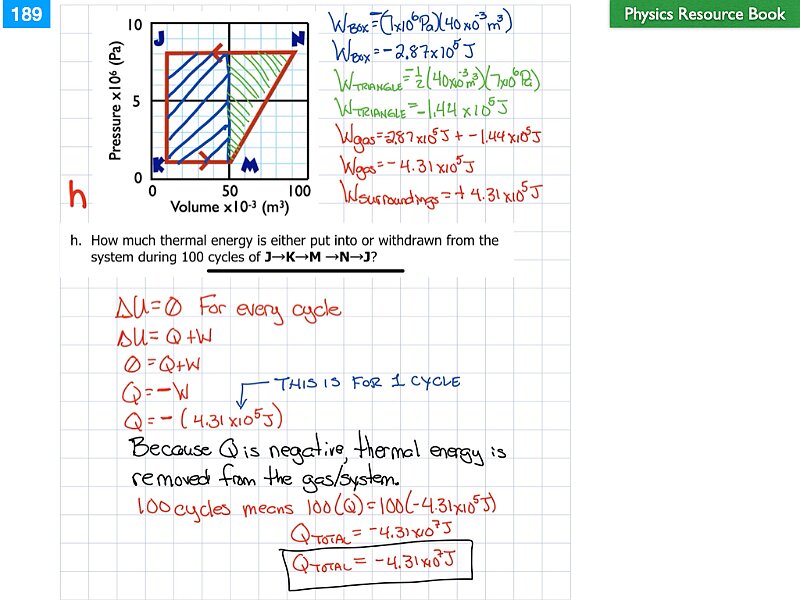 189
Physics Resource Book
J
N
K
M
10
5
0
0
50
100
Pressure x10⁶ (Pa)
Volume x10⁻³ (m³)
W_BOX = -(7x10⁶Pa)(40x10⁻³m³)
W_BOX = -2.87x10⁵J
W_TRIANGLE = -½(40x10⁻³m³)(7x10⁶Pa)
W_TRIANGLE = -1.44x10⁵J
W_gas = -2.87x10⁵J + -1.44x10⁵J
W_gas = -4.31x10⁵J
W_surroundings = +4.31x10⁵J
h
h. How much thermal energy is either put into or withdrawn from the
system during 100 cycles of J→K→M→N→J?
ΔU=0 For every cycle
ΔU=Q+W
0=Q+W
Q=-W
THIS IS FOR 1 CYCLE
Q=-(4.31x10⁵J)
Because Q is negative, thermal energy is
removed from the gas/system.
100 cycles means 100(Q)=100(-4.31x10⁵J)
Q_TOTAL = -4.31x10⁷J
Q_TOTAL = -4.31x10⁷J